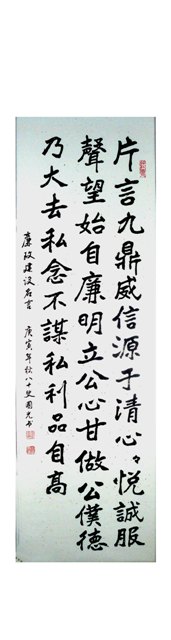 片言九鼎威信源于清心々悦誠服
聲望始自廉明立公心甘做公僕德
乃大去私念不謀私利品自高
廉政建设名言 庚寅年秋八十叟国光书